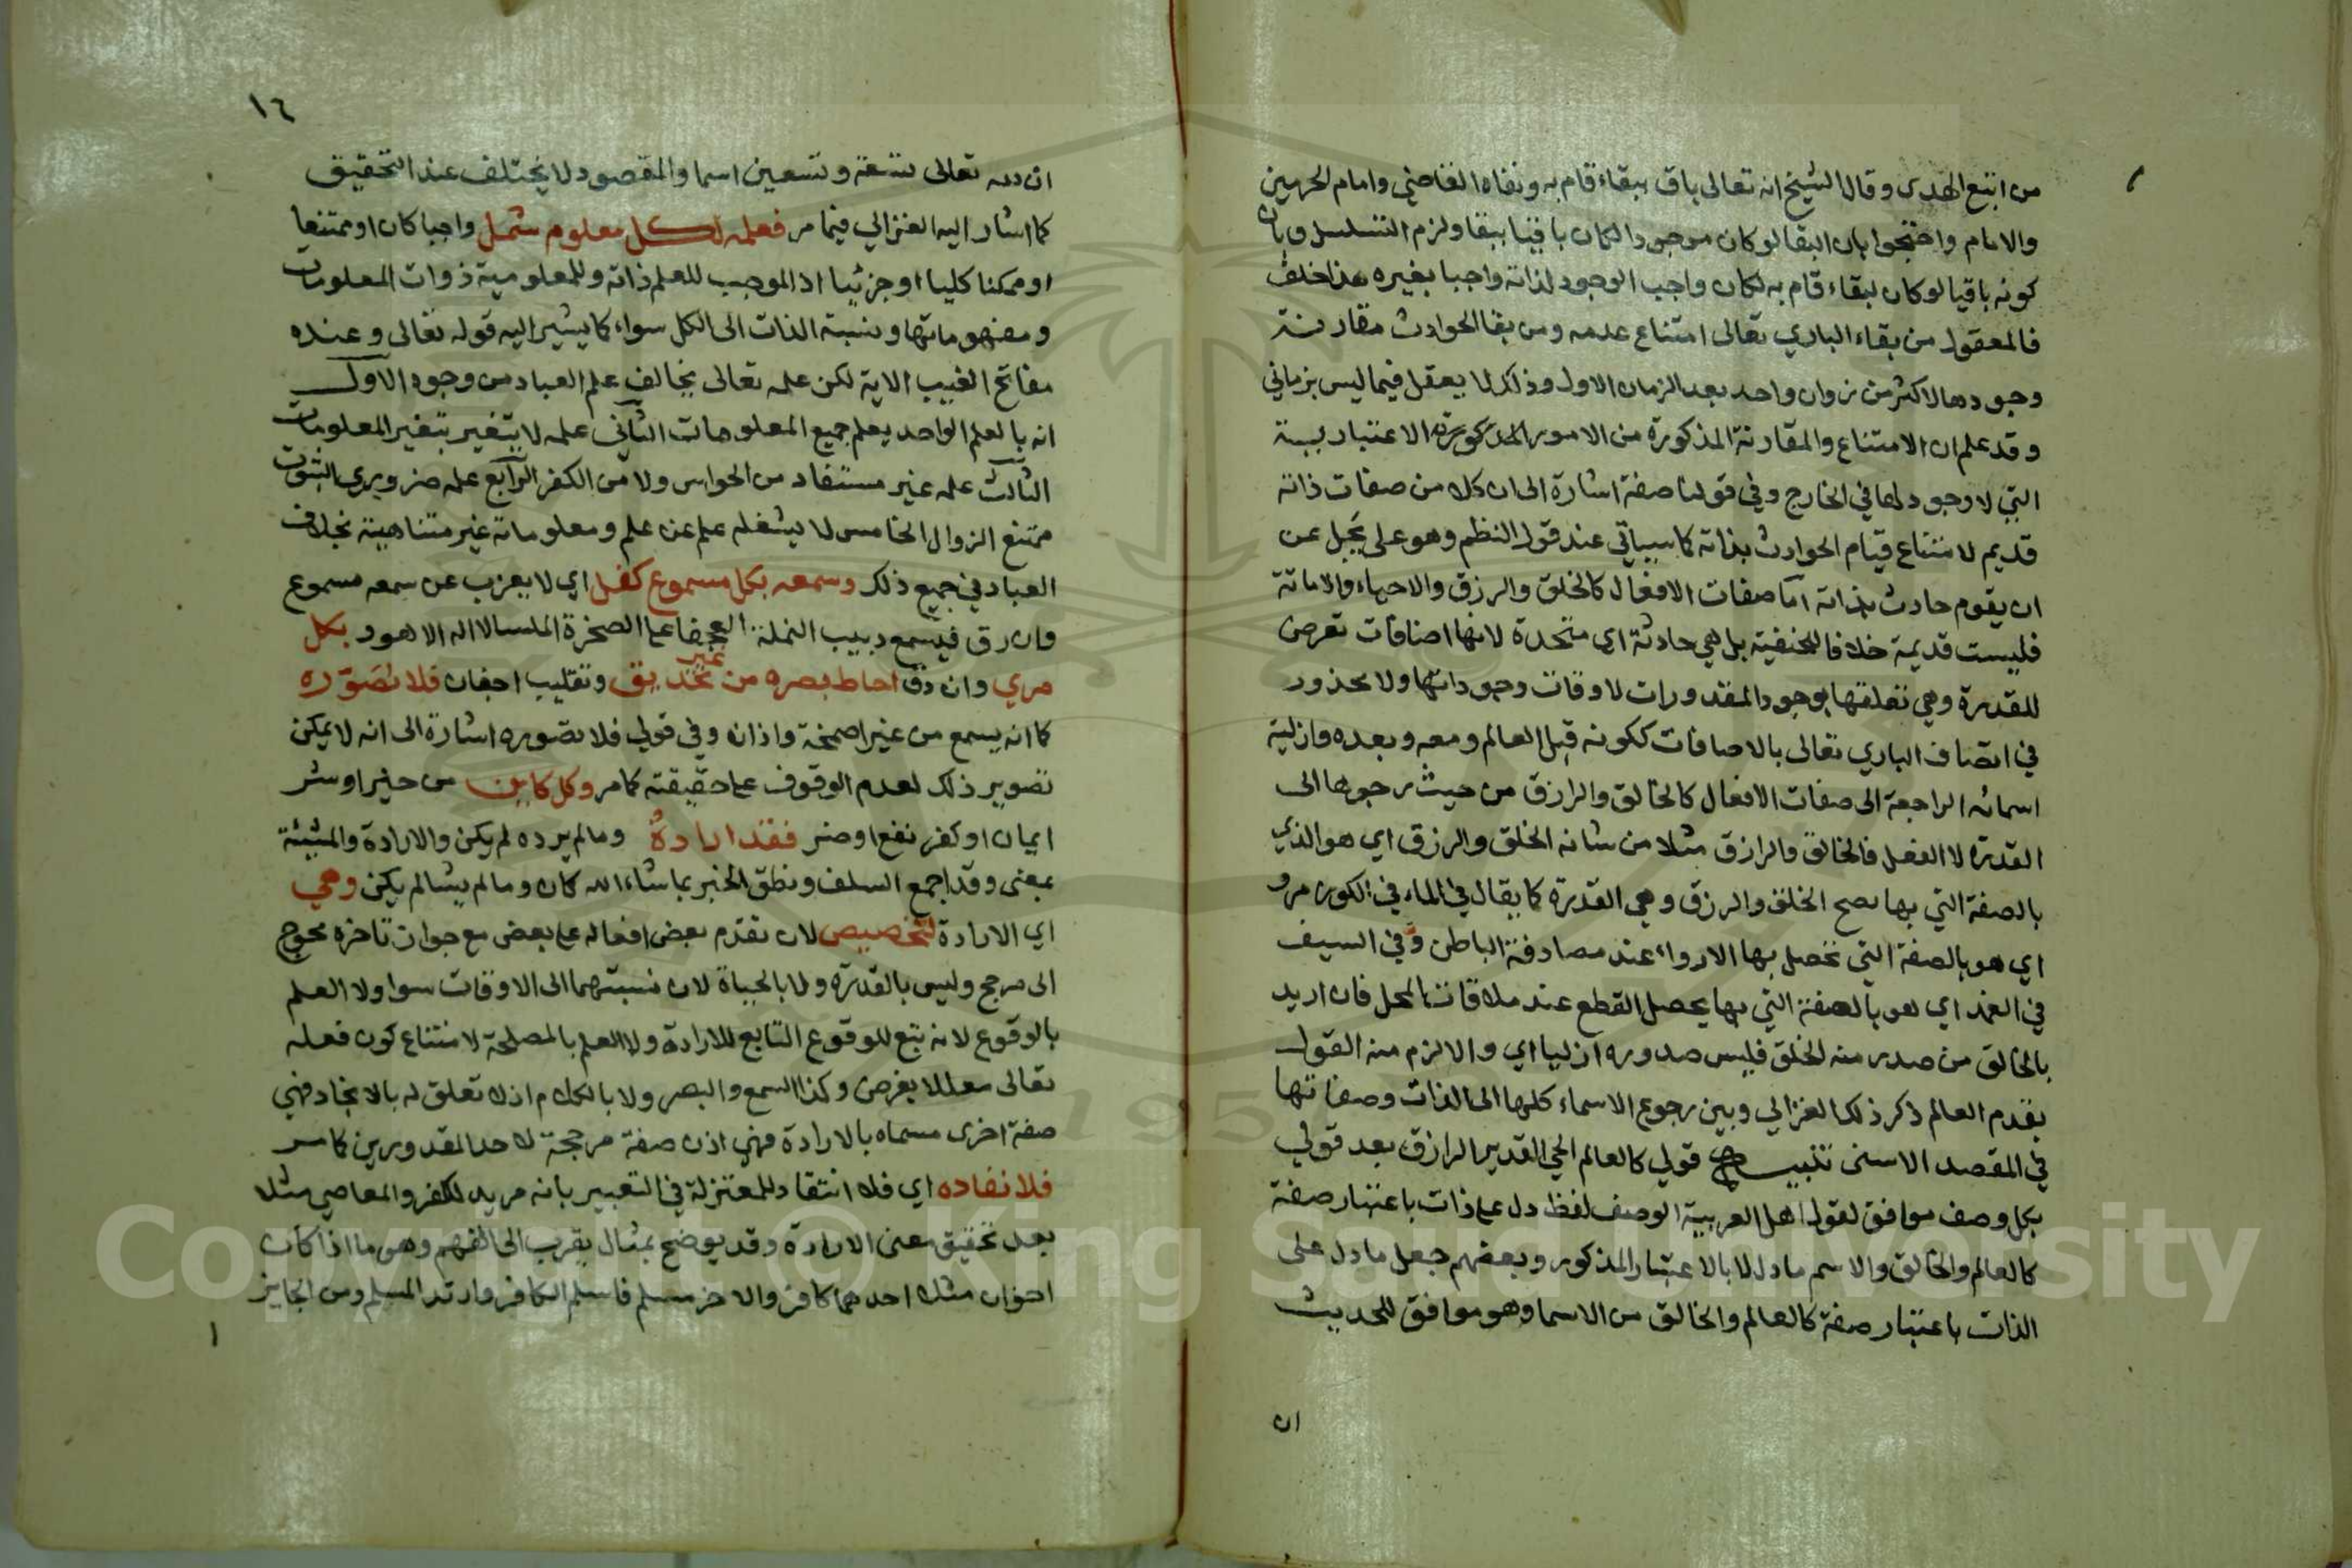 من اتبع الهدى وقال الشيخ انه تعالى باق ببقاء قام به ونفاه القاضي وامام الحرمين
والامام واحتجوا بان البقا لو كان موجودا لكان باقيا ببقا ولزم التسلسل وبان
كونه باقيا لو كان لبقاء قام به لكان واجب الوجود لذاته واجبا بغيره هذا خلف
فالمعقول من بقاء الباري تعالى امتناع عدمه ومن بقا الحوادث مقارنة
وجودها لاكثر من زمان واحد بعد الزمان الاول وذلك لا يعقل فيما ليس بزماني
وقد علم ان الامتناع والمقارنة المذكورة من الامور الاعتبارية
التي لا وجود لها في الخارج وفي قولنا صفة اشارة الى ان كلا من صفات ذاته
قديم لامتناع قيام الحوادث بذاته كما سياتي عند قول النظم وهو على يجل عن
ان يقوم حادث بذاته اما صفات الافعال كالخلق والرزق والاحياء والاماتة
فليست قديمة خلافا للحنفية بل هي حادثة اي متجددة لانها اضافات تعرض
للقدرة وهي تعلقها بوجود المقدورات لاوقات وجوداتها ولا محذور
في اتصاف الباري تعالى بالاضافات ككونه قبل العالم ومعه وبعده وازلية
اسمائه الراجعة الى صفات الافعال كالخالق والرازق من حيث رجوعها الى
القدرة لا الفعل فالخالق والرازق مثلا من شانه الخلق والرزق اي هو الذي
بالصفة التي بها يصح الخلق والرزق وهي القدرة كما يقال في الماء في الكوز مرو
اي هو بالصفة التي تحصل بها الارواء عند مصادفة الباطن وفي السيف
في الغمد اي هو بالصفة التي بها يحصل القطع عند ملاقات المحل فان اريد
بالخالق من صدر منه الخلق فليس صدوره ازليا اي والا لزم منه القول
بقدم العالم ذكر ذلك الغزالي وبين رجوع الاسماء كلها الى الذات وصفاتها
في المقصد الاسنى تنبيه قولي كالعالم الحي القدير الرازق بعد قولي
بكل وصف موافق لقول اهل العربية الوصف لفظ دل على ذات باعتبار صفة
كالعالم والخالق والاسم ما دل لا بالاعتبار المذكور وبعضهم جعل ما دل على
الذات باعتبار صفة كالعالم والخالق من الاسما وهو موافق للحديث
ان
١٦
ان لله تعالى تسعة وتسعين اسما والمقصود لا يختلف عند التحقيق
كما اشار اليه الغزالي فيما مر فعلمه لكل معلوم شمل واجبا كان او ممتنعا
او ممكنا كليا او جزئيا اذ الموجب للعلم ذاته وللمعلومية ذوات المعلومات
ومفهوماتها ونسبة الذات الى الكل سواء كما يشير اليه قوله تعالى وعنده
مفاتح الغيب الاية لكن علمه تعالى يخالف علم العباد من وجوه الاول
انه بالعلم الواحد يعلم جميع المعلومات الثاني علمه لا يتغير بتغير المعلومات
الثالث علمه غير مستفاد من الحواس ولا من الكفر الرابع علمه ضروري الثبوت
ممتنع الزوال الخامس لا يشغله علم عن علم ومعلوماته غير متناهية بخلاف
العباد في جميع ذلك وسمعه بكل مسموع كفل اي لا يعزب عن سمعه مسموع
وان رق فيسمع دبيب النملة العجفا على الصخرة الملسا لا اله الا هو و بكل
مري وان دق احاط بصره من غير تحديق وتقليب اجفان فلا تصوره
كما انه يسمع من غير اصمخة واذان وفي قولي فلا تصوره اشارة الى انه لا يمكن
تصوير ذلك لعدم الوقوف على حقيقته كما مر وكل كاين من خير او شر
ايمان او كفر نفع او ضر فقد اراده وما لم يرده لم يكن والارادة والمشيئة
بمعنى وقد اجمع السلف ونطق الخبر بما شاء الله كان وما لم يشا لم يكن وهي
اي الارادة لتخصيص لان تقدم بعض افعاله على بعض مع جواز تاخره محوج
الى مرجح وليس بالقدرة ولا بالحياة لان نسبتهما الى الاوقات سوا ولا العلم
بالوقوع لانه تبع للوقوع التابع للارادة ولا العلم بالمصلحة لامتناع كون فعله
تعالى معللا بغرض وكذا السمع والبصر ولا بالكلام اذ لا تعلق له بالايجاد فهي
صفة اخرى مسماه بالارادة فهي اذن صفة مرجحة لاحد المقدورين كما مر
فلا نفاده اي فلا انتقاد للمعتزلة في التعبير بانه مريد للكفر والمعاصي مثلا
بعد تحقيق معنى الارادة وقد يوضح بمثال يقرب الى الفهم وهو ما اذا كان
اخوان مثلا احدهما كافر والاخر مسلم فاسلم الكافر وارتد المسلم ومن الجايز
Copyright © King Saud University
195